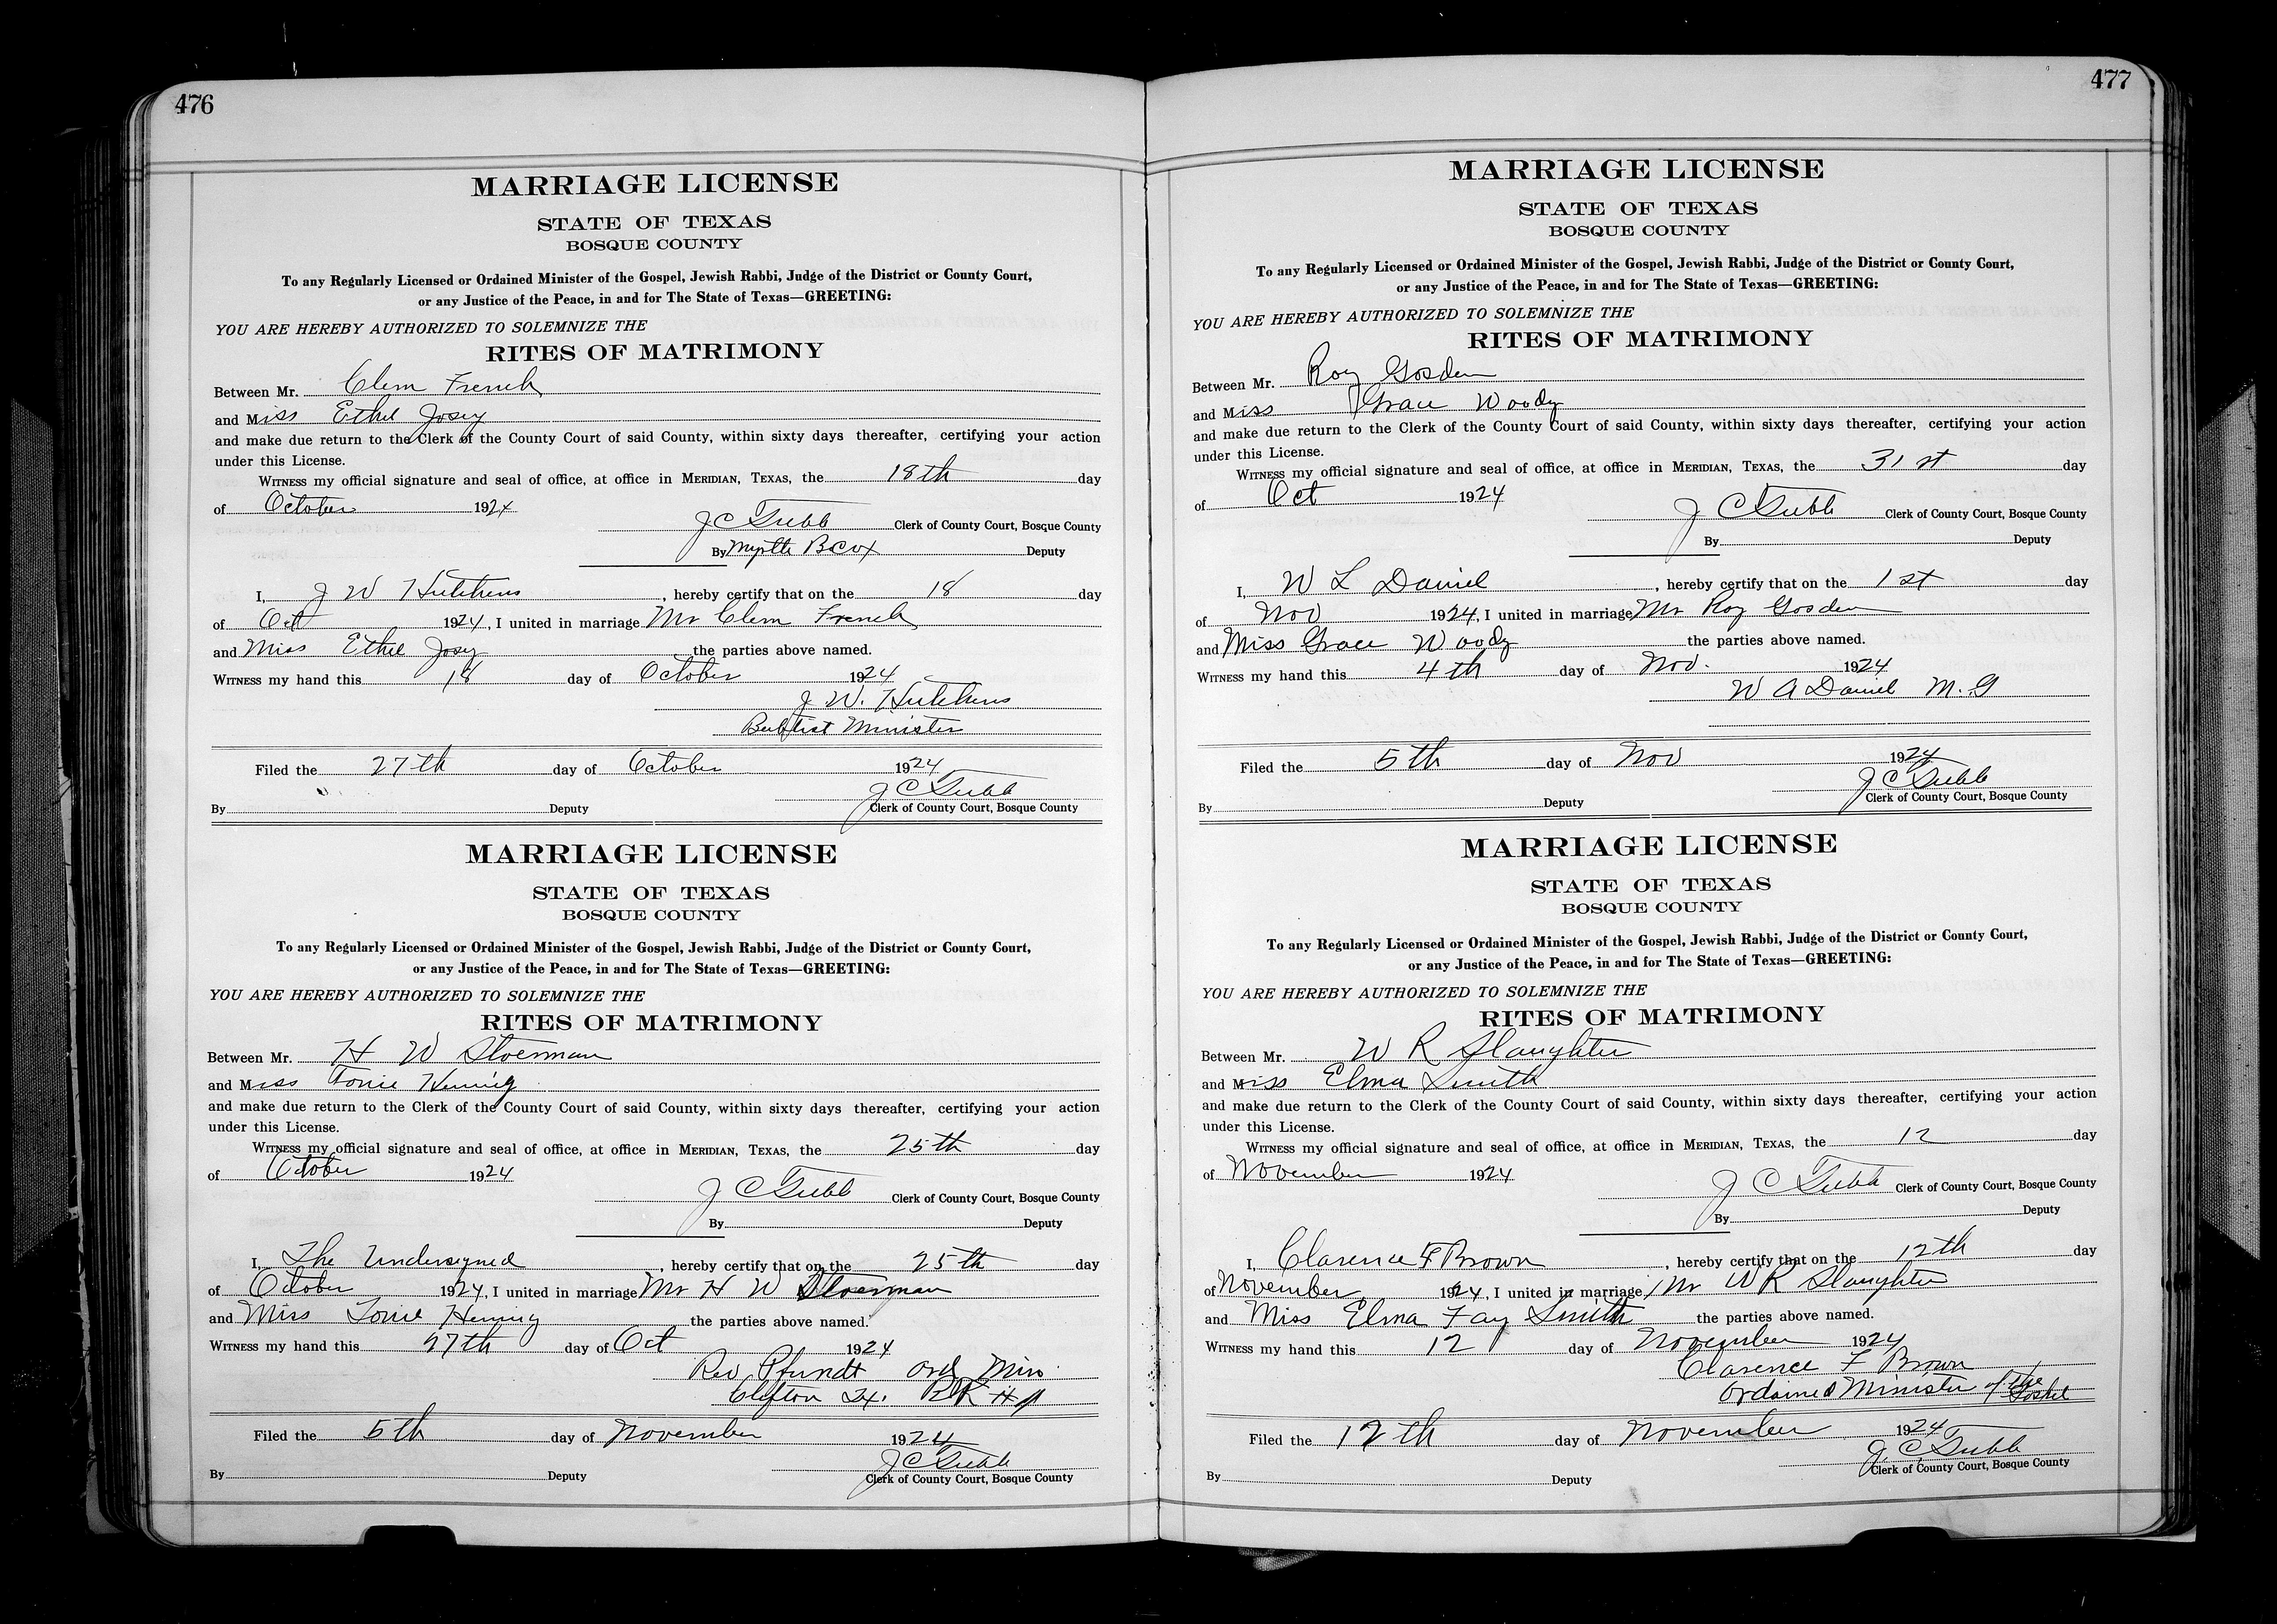 476
MARRIAGE LICENSE
STATE OF TEXAS
BOSQUE COUNTY
To any Regularly Licensed or Ordained Minister of the Gospel, Jewish Rabbi, Judge of the District or County Court,
or any Justice of the Peace, in and for The State of Texas—GREETING:
YOU ARE HEREBY AUTHORIZED TO SOLEMNIZE THE
RITES OF MATRIMONY
Between Mr. Clem French
and Miss Ethel Josey
and make due return to the Clerk of the County Court of said County, within sixty days thereafter, certifying your action
under this License.
WITNESS my official signature and seal of office, at office in MERIDIAN, TEXAS, the 18th day
of October 1924
J C Tubb Clerk of County Court, Bosque County
By Myrtle B Cox Deputy
I, J W Hutchens, hereby certify that on the 18 day
of Oct 1924, I united in marriage Mr Clem French
and Miss Ethel Josey the parties above named.
WITNESS my hand this 18 day of October 1924
J. W. Hutchens
Baptist Minister
Filed the 27th day of October 1924
J C Tubb
By Deputy Clerk of County Court, Bosque County
MARRIAGE LICENSE
STATE OF TEXAS
BOSQUE COUNTY
To any Regularly Licensed or Ordained Minister of the Gospel, Jewish Rabbi, Judge of the District or County Court,
or any Justice of the Peace, in and for The State of Texas—GREETING:
YOU ARE HEREBY AUTHORIZED TO SOLEMNIZE THE
RITES OF MATRIMONY
Between Mr. H W Stoerman
and Miss Tonie Hennig
and make due return to the Clerk of the County Court of said County, within sixty days thereafter, certifying your action
under this License.
WITNESS my official signature and seal of office, at office in MERIDIAN, TEXAS, the 25th day
of October 1924
J C Tubb Clerk of County Court, Bosque County
By Deputy
I, The Undersigned, hereby certify that on the 25th day
of October 1924, I united in marriage Mr H W Stoerman
and Miss Tonie Hennig the parties above named.
WITNESS my hand this 27th day of Oct 1924
Rev Pfundt Ord Min
Clifton Tx.
Filed the 5th day of November 1924
J C Tubb
By Deputy Clerk of County Court, Bosque County
477
MARRIAGE LICENSE
STATE OF TEXAS
BOSQUE COUNTY
To any Regularly Licensed or Ordained Minister of the Gospel, Jewish Rabbi, Judge of the District or County Court,
or any Justice of the Peace, in and for The State of Texas—GREETING:
YOU ARE HEREBY AUTHORIZED TO SOLEMNIZE THE
RITES OF MATRIMONY
Between Mr. Roy Gosden
and Miss Grace Woody
and make due return to the Clerk of the County Court of said County, within sixty days thereafter, certifying your action
under this License.
WITNESS my official signature and seal of office, at office in MERIDIAN, TEXAS, the 31st day
of Oct 1924
J C Tubb Clerk of County Court, Bosque County
By Deputy
I, W L Daniel, hereby certify that on the 1st day
of Nov 1924, I united in marriage Mr Roy Gosden
and Miss Grace Woody the parties above named.
WITNESS my hand this 4th day of Nov. 1924
W A Daniel M. G
Filed the 5th day of Nov 1924
J C Tubb
By Deputy Clerk of County Court, Bosque County
MARRIAGE LICENSE
STATE OF TEXAS
BOSQUE COUNTY
To any Regularly Licensed or Ordained Minister of the Gospel, Jewish Rabbi, Judge of the District or County Court,
or any Justice of the Peace, in and for The State of Texas—GREETING:
YOU ARE HEREBY AUTHORIZED TO SOLEMNIZE THE
RITES OF MATRIMONY
Between Mr. W R Slaughter
and Miss Elma Smith
and make due return to the Clerk of the County Court of said County, within sixty days thereafter, certifying your action
under this License.
WITNESS my official signature and seal of office, at office in MERIDIAN, TEXAS, the 12 day
of November 1924
J C Tubb Clerk of County Court, Bosque County
By Deputy
I, Clarence F Brown, hereby certify that on the 12th day
of November 1924, I united in marriage Mr W R Slaughter
and Miss Elma Fay Smith the parties above named.
WITNESS my hand this 12 day of November 1924
Clarence F Brown
Ordained Minister of the Gospel
Filed the 12th day of November 1924
J. C. Tubb
By Deputy Clerk of County Court, Bosque County